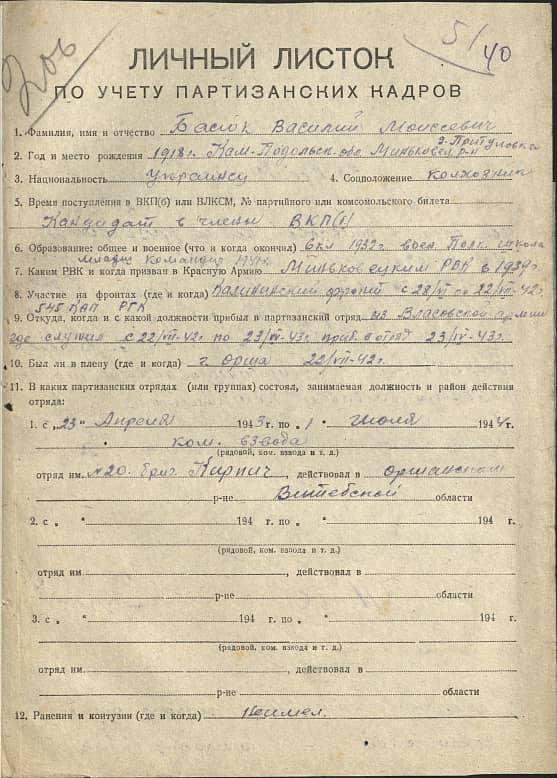 5/40
ЛИЧНЫЙ ЛИСТОК
ПО УЧЕТУ ПАРТИЗАНСКИХ КАДРОВ
1. Фамилия, имя и отчество Басюк Василий Моисеевич
д. Притуловка
2. Год и место рождения 1918 г. Кам-Подольск. обл. Миньковец. р-н
3. Национальность Украинец 4. Соцположение колхозник
5. Время поступления в ВКП(б) или ВЛКСМ, № партийного или комсомольского билета
Кандидат в члены ВКП(б)
6. Образование: общее и военное (что и когда окончил) 6 кл 1932 г. воен. Полк. школа
младш. командир
7. Каким РВК и когда призван в Красную Армию Миньковецким РВК в 1939 г.
8. Участие на фронтах (где и когда) Калининский фронт с 28/VI по 22/VII-42 г.
545 ПАП РГК
9. Откуда, когда и с какой должности прибыл в партизанский отряд из Власовской армии
где служил с 22/VII-42 г. по 23/IV-43 г. приб. в отряд 23/IV-43 г.
10. Был ли в плену (где и когда) г. Орша 22/VII-42 г.
11. В каких партизанских отрядах (или группах) состоял, занимаемая должность и район действия
отряда:
1. с „23" Апреля 1943 г. по „1" июля 1944 г.
ком. взвода
(рядовой, ком. взвода и т. д.)
отряд им. №20. бриг. Кирпич, действовал в Оршанском
р-не Витебской области
2. с „ " 194 г. по „ " 194 г.
(рядовой, ком. взвода и т. д.)
отряд им. , действовал в
р-не области
3. с „ " 194 г. по „ " 194 г.
(рядовой, ком. взвода и т. д.)
отряд им. , действовал в
р-не области
12. Ранения и контузии (где и когда) Неимел.